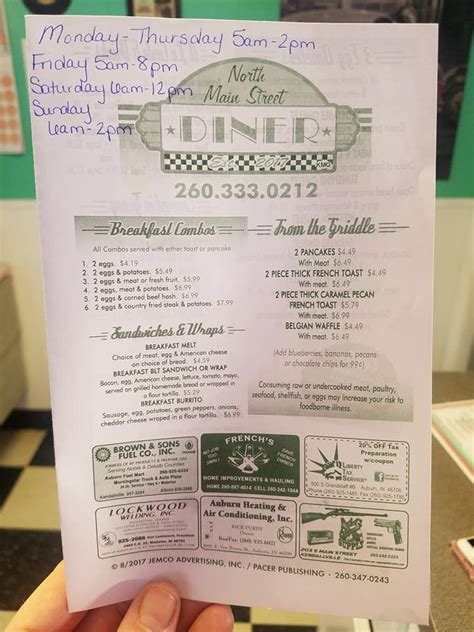 Monday - Thursday 5am-2pm
Friday 5am-8pm
Saturday 6am-12pm
Sunday
6am-2pm
North
Main Street
DINER
Est. 2017
KMQ
260.333.0212
Breakfast Combos
All Combos served with either toast or pancake
1. 2 eggs. $4.19
2. 2 eggs & potatoes. $5.49
3. 2 eggs & meat or fresh fruit. $5.99
4. 2 eggs, meat & potatoes. $6.99
5. 2 eggs & corned beef hash. $6.99
6. 2 eggs & country fried steak & potatoes. $7.99
Sandwiches & Wraps
BREAKFAST MELT
Choice of meat, egg & American cheese
on choice of bread. $4.59
BREAKFAST BLT SANDWICH OR WRAP
Bacon, egg, American cheese, lettuce, tomato, mayo,
served on grilled homemade bread or wrapped in
a flour tortilla. $5.29
BREAKFAST BURRITO
Sausage, egg, potatoes, green peppers, onions,
cheddar cheese wrapped in a flour tortilla. $6.99
From the Griddle
2 PANCAKES $4.49
With meat. $6.49
2 PIECE THICK FRENCH TOAST $4.49
With meat. $6.49
2 PIECE THICK CARAMEL PECAN
FRENCH TOAST $5.79
With meat. $6.99
BELGIAN WAFFLE $4.49
With meat. $6.49
(Add blueberries, bananas, pecans
or chocolate chips for 99¢)
Consuming raw or undercooked meat, poultry,
seafood, shellfish, or eggs may increase your risk to
foodborne illness.
BROWN & SONS
FUEL CO., INC.
Auburn Fuel Mart
Morningstar Truck & Auto Plaza
Kendallville
FRENCH'S
NO JOB TOO SMALL
HOME IMPROVEMENTS & HAULING
HOME 260-897-4014 CELL 260-242-1944
20% OFF Tax
Preparation
w/coupon
LIBERTY
TAX
SERVICE
LOCKWOOD
WELDING, INC.
925-2086
Auburn Heating &
Air Conditioning, Inc.
RICK PURDY
Owner
203 S MAIN STREET
KENDALLVILLE
© 8/2017 JEMCO ADVERTISING, INC. / PACER PUBLISHING · 260-347-0243